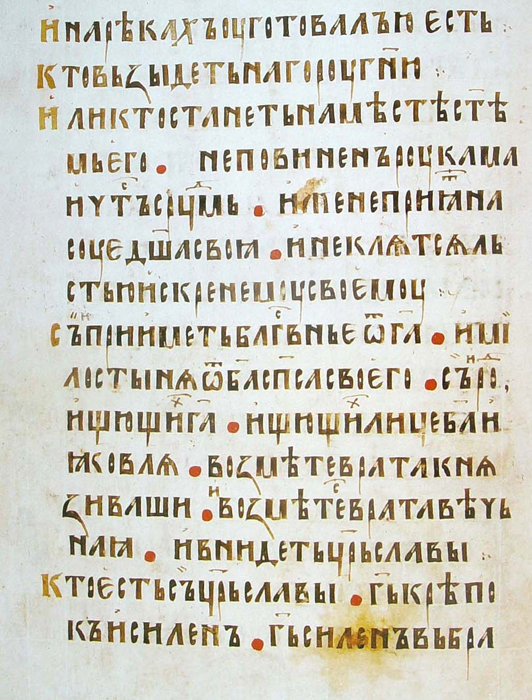 И на рѣкахъ оуготовалъ ю есть
Кто възыдеть на гороу гн҃ю
Или кто станеть на мѣстѣ стѣ
мь его. неповиненъ роукама
и чт҃ъ срд҃цмь. иже не прия на
соуе дш҃а своꙗ. и не клѧтсѧ ль
стью искренемоу своемоу
Съ прииметь блг҃внье ѿ г҃а. и ми
лостынѧ ѿ б҃а сп҃са своѥго. съ ро
ищющиⷯ г҃а. ищющиⷯ лице б҃а и
ꙗковлѧ. возмѣте врата кнѧ
зи ваши. возмѣтеⷭ врата вѣчь
наꙗ. и внидеть цр҃ь славы
Кто есть съ цр҃ь славы. г҃ь крѣпо
къ и силенъ. г҃ь силенъ въ бра